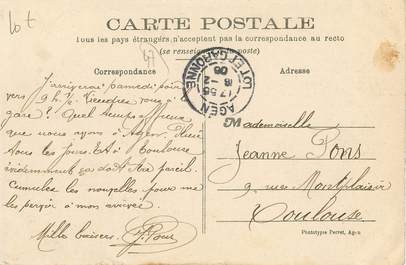 Lot
47
CARTE POSTALE
Tous les pays étrangers n'acceptent pas la correspondance au recto
(se renseigner à la poste)
Correspondance
Adresse
AGEN
17 55
18 - 2
06
LOT ET GARONNE
J'arriverai Samedi soir
vers 9 h. ½. Viendras vous à
gare? Quel temps affreux
que nous ayons à Agen. Pluie
tous les jours. Et à Toulouse
évidemment ça doit être pareil.
Cumulez les nouvelles pour me
les servir à mon arrivée.
Mille baisers.
J. Pons
Mademoiselle
Jeanne Pons
9 rue Montplaisir
Toulouse
Phototypie Perret, Agen